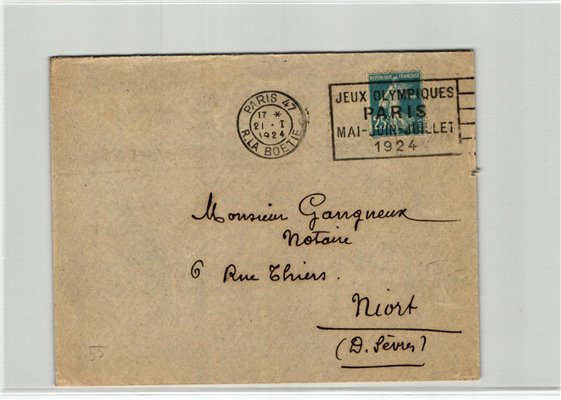 PARIS 47
17 *
21 • I
1924
R. LA BOETIE
REPUBLIQUE FRANÇAISE
25
JEUX OLYMPIQUES
PARIS
MAI-JUIN-JUILLET
1924
Monsieur Gangneux
Notaire
6 Rue Thiers.
Niort
(D. Sèvres)
55